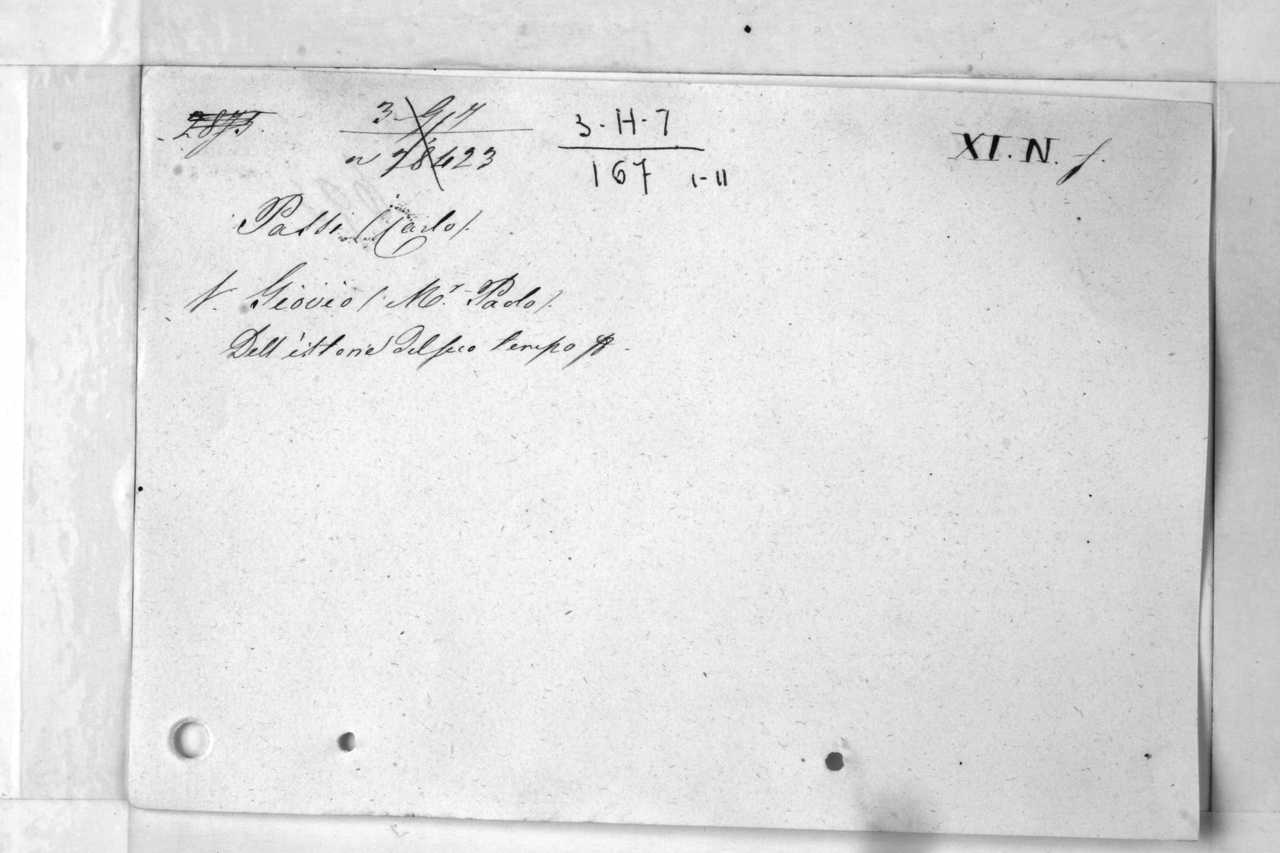 2873.
3-G-7
n 78423
3-H-7
167 I-II
XI. N. f.
Passi (Carlo).
V. Giovio (Mr. Paolo).
Dell'istorie del suo tempo